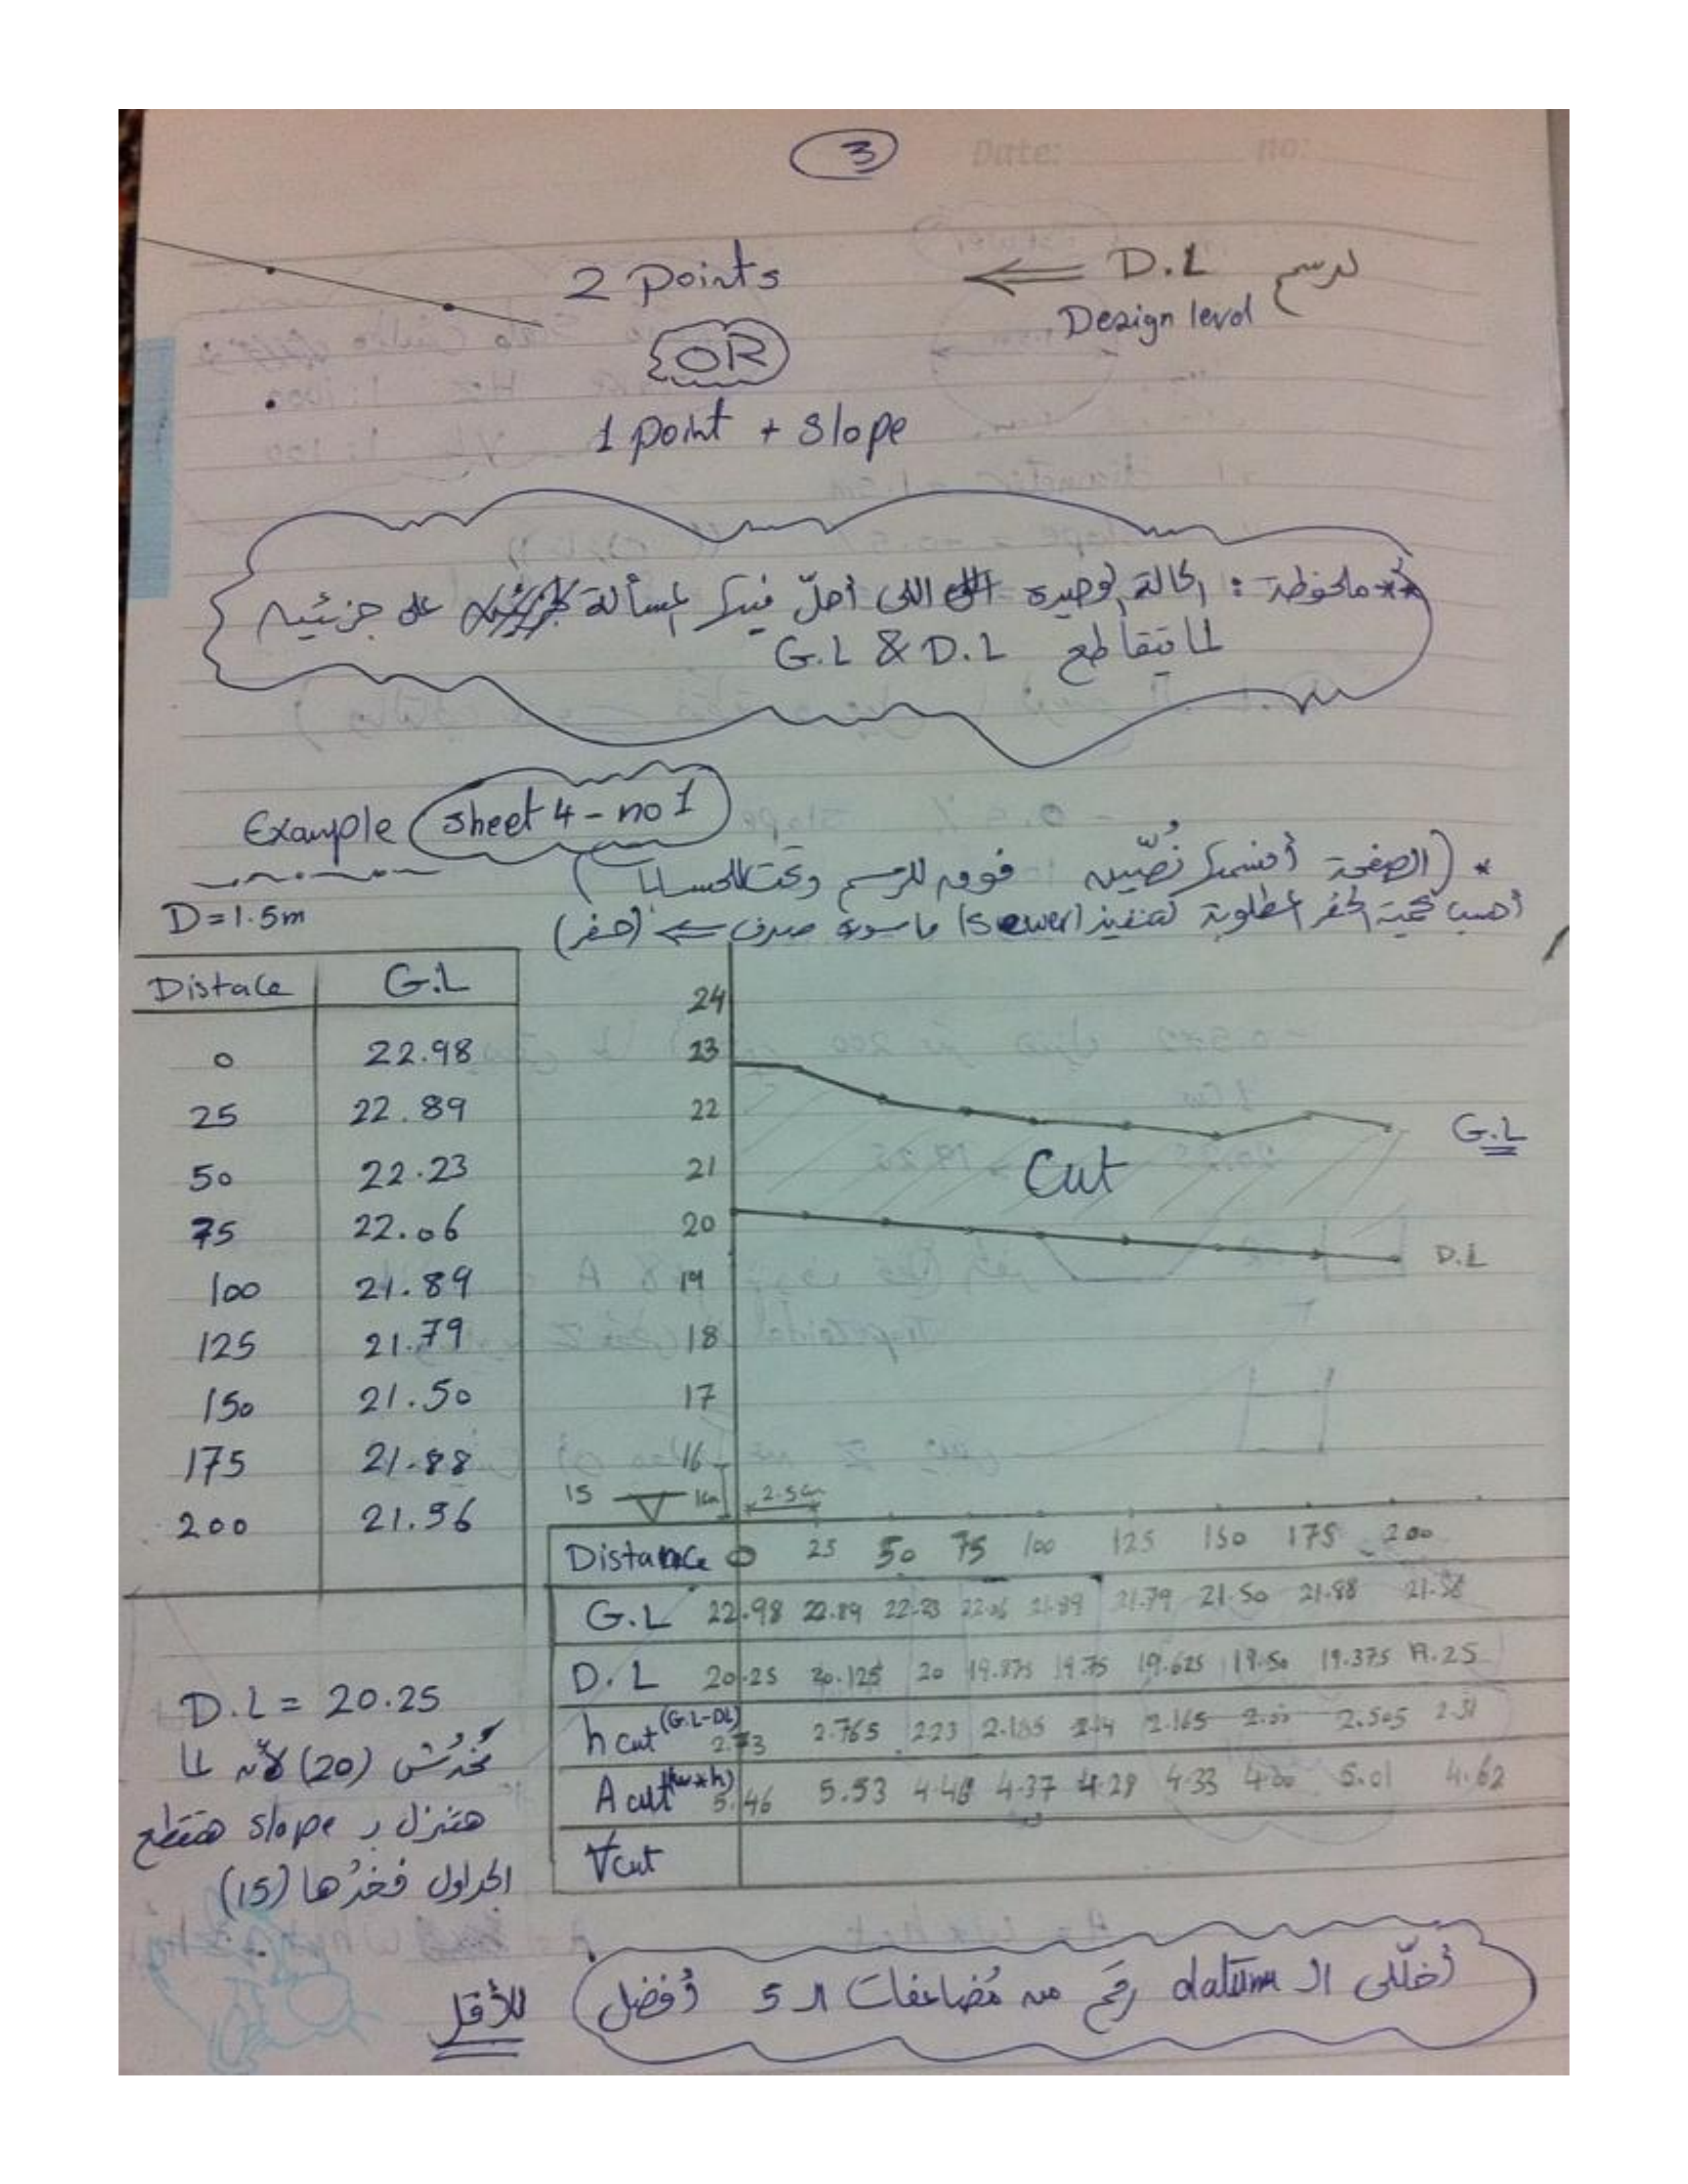 3
Date: no:
2 points ⇐ D.L لرسم
Design level
OR
1 point + slope
** ملحوظة : الحالة الوحيدة اللى أحلّ فيها المسألة على جزئين
لما يتقاطع G.L & D.L
Example sheet 4 - no 1
* (الصفحة أقسمها نُصّين فوق للرسم وتحت للحسابات)
D = 1.5m
أحسب كمية الحفر المطلوبة لتنفيذ (sewer) ماسورة صرف ⇐ (حفر)
Distace G.L
0 22.98
25 22.89
50 22.23
75 22.06
100 21.89
125 21.79
150 21.50
175 21.88
200 21.56
24
23
22
21
20
19
18
17
16
15
1cm
2.5cm
G.L
Cut
D.L
Distance 0 25 50 75 100 125 150 175 200
G.L 22.98 22.89 22.23 22.06 21.89 21.79 21.50 21.88 21.56
D.L 20.25 20.125 20 19.875 19.75 19.625 19.50 19.375 19.25
h cut (G.L-DL) 2.73 2.765 2.23 2.185 2.14 2.165 2.00 2.505 2.31
A cut (w*h) 5.46 5.53 4.46 4.37 4.28 4.33 4.00 5.01 4.62
∀cut
D.L = 20.25
مخدتش (20) لأنه لما
هتنزل بـ slope هتقطع
الجداول فخدها (15)
أخلّى الـ datum رقم من مُضاعفات الـ 5 أفضل
للأقل